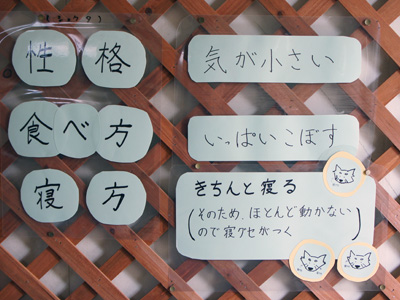 性格
気が小さい
食べ方
いっぱいこぼす
寝方
きちんと寝る
(そのため、ほとんど動かない
ので寝グセがつく)